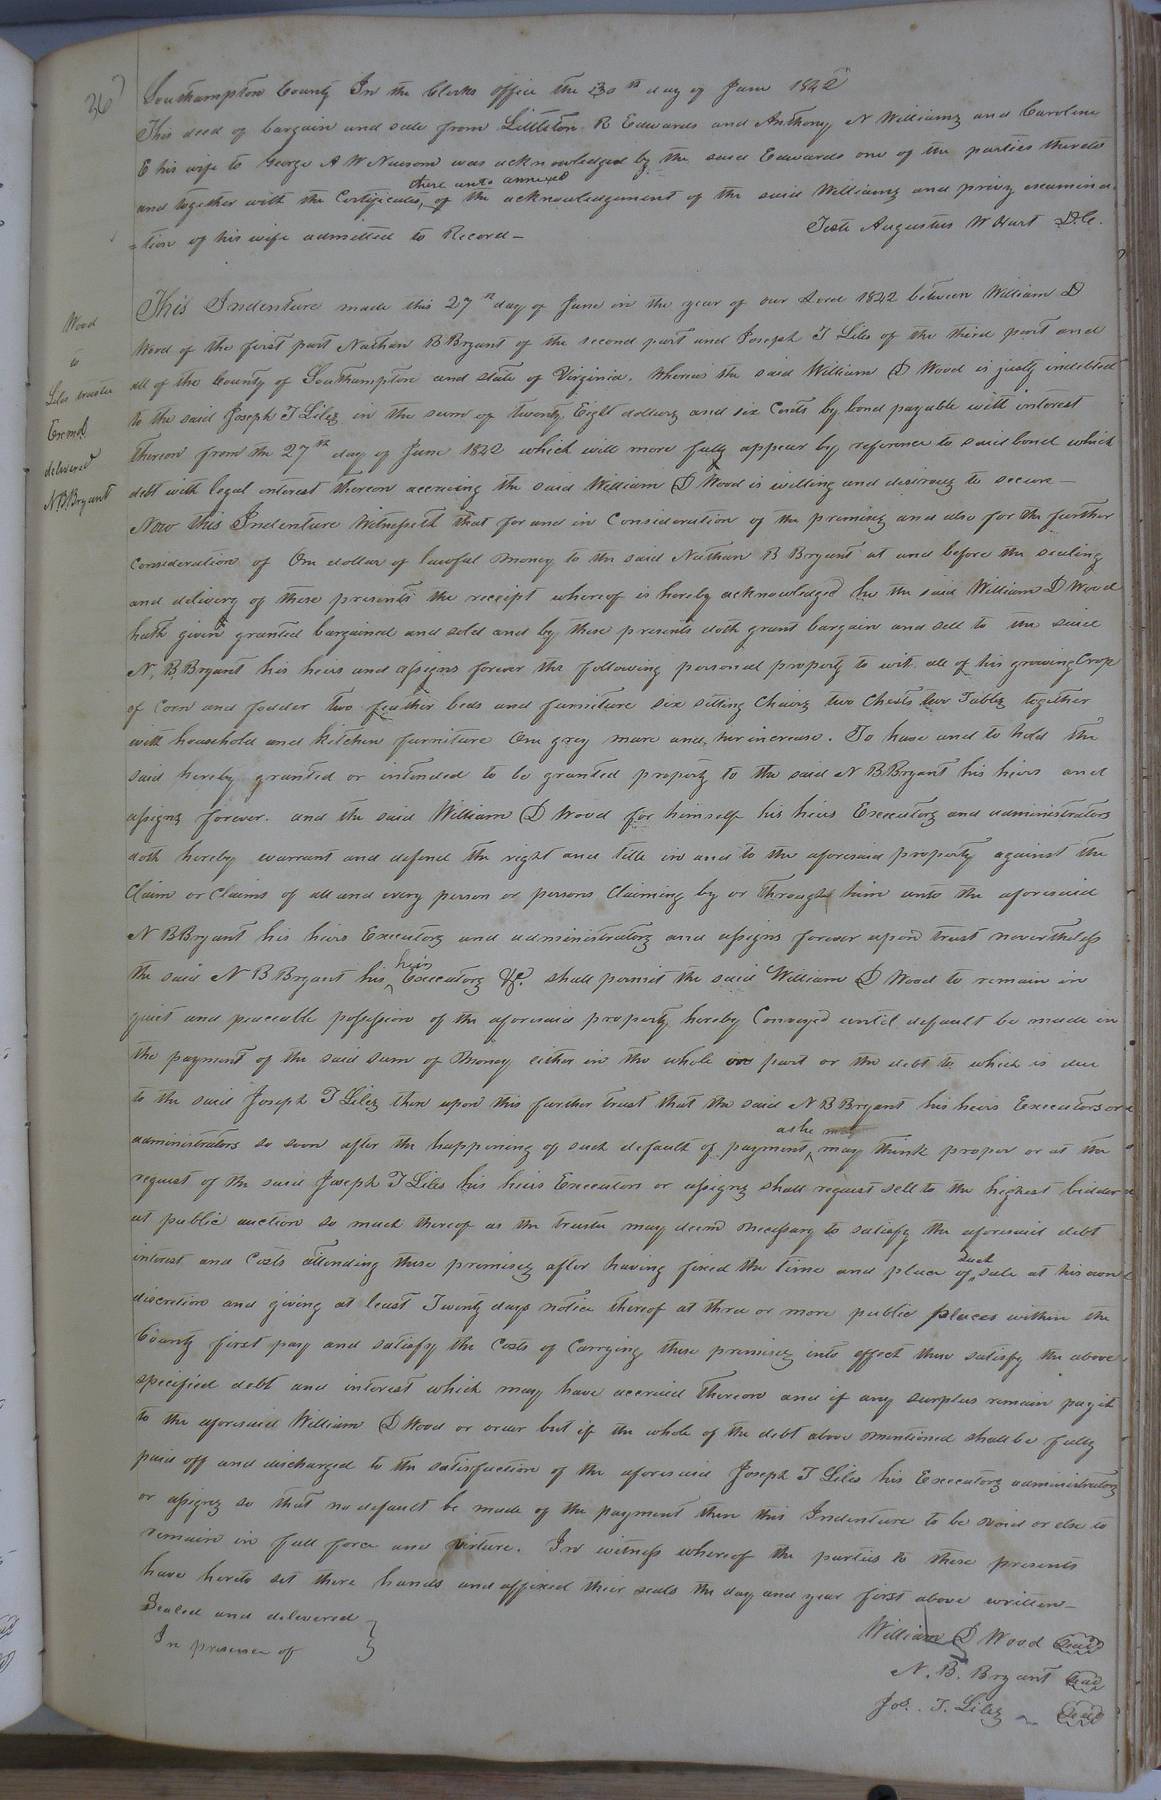 367
Southampton County In the Clerks office the 30th day of June 1842
This deed of bargain and sale from Littleton R Edwards and Anthony N Williams and Caroline
E his wife to George A W Newsom was acknowledged by the said Edwards one of the parties thereto
there unto annexed
and together with the Certificates, of the acknowledgement of the said Williams and privy examina-
=tion of his wife admitted to Record-
Teste Augustus W Hart D.C.
Wood
to
Liles trustee
Exmd
delivered
N B Bryant
This Indenture made this 27th day of June in the year of our Lord 1842 between William D
Wood of the first part Nathan B Bryant of the second part and Joseph T Liles of the third part and
all of the County of Southampton and state of Virginia. Whereas the said William D Wood is justly indebted
to the said Joseph T Liles in the sum of twenty Eight dollars and six Cents by bond payable with interest
thereon from the 27th day of June 1842 which will more fully appear by reference to said bond which
debt with legal interest thereon accruing the said William D Wood is willing and desirous to secure-
Now this Indenture Witnesseth that for and in Consideration of the premises and also for the further
Consideration of One dollar of lawful money to the said Nathan B Bryant at and before the sealing
and delivery of these presents the receipt whereof is hereby acknowledged he the said William D Wood
hath given granted bargained and sold and by these presents doth grant bargain and sell to the said
N. B Bryant his heirs and assigns forever the following personal property to wit. all of his growing Crop
of Corn and fodder two feather beds and furniture six sitting Chairs two Chests two Tables together
with household and kitchen furniture One grey mare and her increase. To have and to hold the
said hereby granted or intended to be granted property to the said N B Bryant his heirs and
assigns forever. and the said William D Wood for himself his heirs Executors and administrators
doth hereby warrant and defend the right and title in and to the aforesaid property against the
Claim or Claims of all and every person or persons Claiming by or through him unto the aforesaid
N B Bryant his heirs Executors and administrators and assigns forever upon trust nevertheless
heirs
the said N B Bryant his Executors &c. shall permit the said William D Wood to remain in
quiet and peaceable possession of the aforesaid property hereby Conveyed until default be made in
the payment of the said sum of money either in the whole or part or the debt to which is due
to the said Joseph T Liles then upon this further trust that the said N B Bryant his heirs Executors or
as he
administrators so soon after the happening of such default of payment, may think proper or at the
request of the said Joseph T Liles his heirs Executors or assigns shall request sell to the highest bidder
at public auction so much thereof as the trustee may deem necessary to satisfy the aforesaid debt
such
interest and Costs attending these premises after having fixed the time and place of sale at his own
discretion and giving at least Twenty days notice thereof at three or more public places within the
County first pay and satisfy the Costs of Carrying these premises into effect then satisfy the above
specified debt and interest which may have accrued thereon and if any surplus remain pay it
to the aforesaid William D Wood or order but if the whole of the debt above mentioned shall be fully
paid off and discharged to the satisfaction of the aforesaid Joseph T Liles his Executors administrators
or assigns so that no default be made of the payment then this Indenture to be void or else to
remain in full force and virture. In witness whereof the parties to these presents
have hereto set there hands and affixed their seals the day and year first above written-
Sealed and delivered
In presence of
William D Wood Seal
N. B. Bryant Seal
Jos. T. Liles Seal